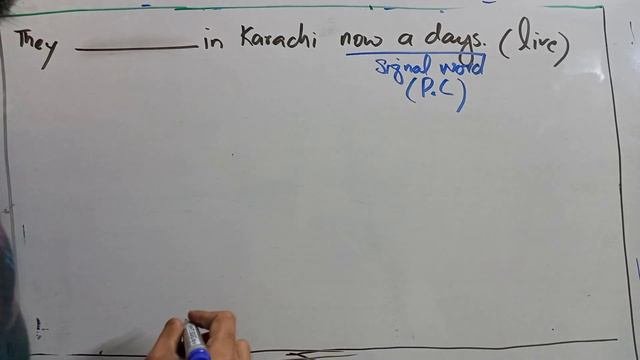 They ________ in Karachi now a days. (live)
signal word
(P.C)